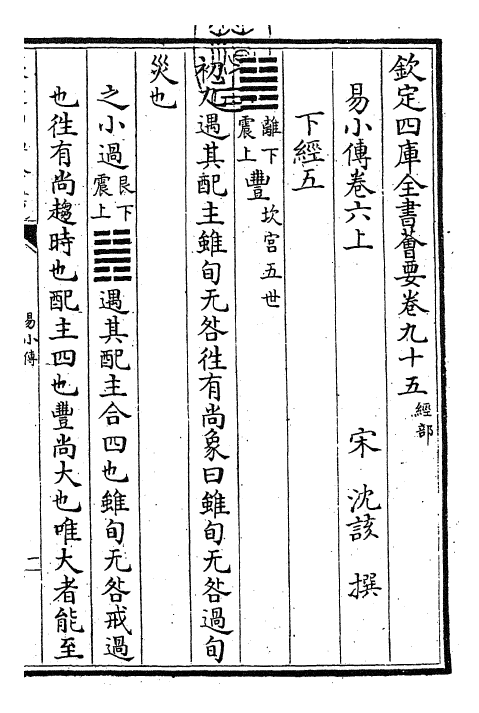 欽定四庫全書薈要卷九十五 經部
易小傳卷六上 宋 沈該 撰
下經五
離下震上 豐 坎宫五世
初九遇其配主雖旬无咎往有尚象曰雖旬无咎過旬
災也
之小過 艮下震上 遇其配主合四也雖旬无咎戒過
也往有尚趨時也配主四也豐尚大也唯大者能至
易小傳